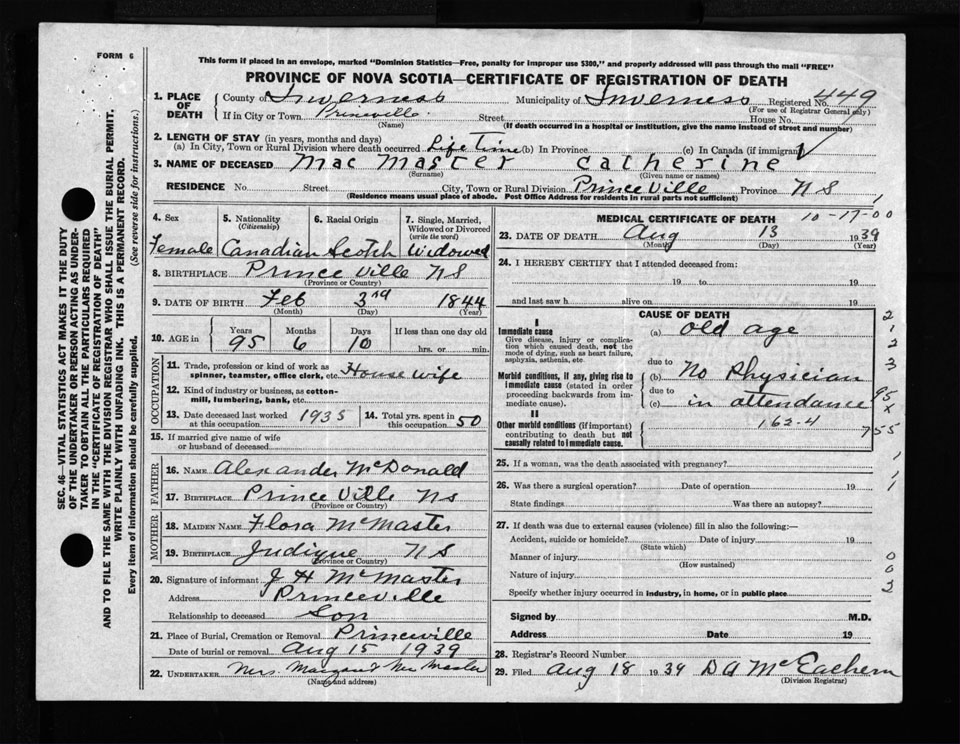 FORM 6
This form if placed in an envelope, marked "Dominion Statistics—Free, penalty for improper use $300," and properly addressed will pass through the mail "FREE"
PROVINCE OF NOVA SCOTIA—CERTIFICATE OF REGISTRATION OF DEATH
SEC. 46—VITAL STATISTICS ACT MAKES IT THE DUTY
OF THE UNDERTAKER OR PERSON ACTING AS UNDER-
TAKER TO OBTAIN ALL THE PARTICULARS REQUIRED
IN THE "CERTIFICATE OF REGISTRATION OF DEATH"
AND TO FILE THE SAME WITH THE DIVISION REGISTRAR WHO SHALL ISSUE THE BURIAL PERMIT.
WRITE PLAINLY WITH UNFADING INK. THIS IS A PERMANENT RECORD.
Every item of information should be carefully supplied. (See reverse side for instructions.)
1. PLACE OF DEATH County of Inverness Municipality of Inverness Registered No. 449
(For use of Registrar General only)
If in City or Town Princeville Street House No.
(Name) (If death occurred in a hospital or institution, give the name instead of street and number)
2. LENGTH OF STAY (in years, months and days)
(a) In City, Town or Rural Division where death occurred Life Time (b) In Province (c) In Canada (if immigrant)
3. NAME OF DECEASED Mac Master Catherine
(Surname) (Given name or names)
RESIDENCE No. Street City, Town or Rural Division Prince Ville Province N S
(Residence means usual place of abode. Post Office Address for residents in rural parts not sufficient)
4. Sex 5. Nationality (Citizenship) 6. Racial Origin 7. Single, Married, Widowed or Divorced (write the word)
Female Canadian Scotch Widowed
8. BIRTHPLACE Prince Ville N S
(Province or Country)
9. DATE OF BIRTH Feb 3rd 1844
(Month) (Day) (Year)
10. AGE IN Years Months Days If less than one day old
95 6 10 hrs. or min.
OCCUPATION
11. Trade, profession or kind of work as spinner, teamster, office clerk, etc. House wife
12. Kind of industry or business, as cotton-mill, lumbering, bank, etc.
13. Date deceased last worked at this occupation 1935 14. Total yrs. spent in this occupation 50
15. If married give name of wife or husband of deceased
FATHER
16. NAME Alexander McDonald
17. BIRTHPLACE Prince Ville N S
(Province or Country)
MOTHER
18. MAIDEN NAME Flora McMaster
19. BIRTHPLACE Judique N S
(Province or Country)
20. Signature of informant J H McMaster
Address Princeville
Relationship to deceased Son
21. Place of Burial, Cremation or Removal Princeville
Date of burial or removal Aug 15 1939
22. UNDERTAKER Mrs
(Name and address)
MEDICAL CERTIFICATE OF DEATH 10-17-00
1
23. DATE OF DEATH Aug 13 1939
(Month) (Day) (Year)
24. I HEREBY CERTIFY that I attended deceased from:
19 to 19
and last saw h alive on 19
CAUSE OF DEATH
I
Immediate cause (a) old age
Give disease, injury or complication which caused death, not the mode of dying, such as heart failure, asphyxia, asthenia, etc.
due to
Morbid conditions, if any, giving rise to immediate cause (stated in order proceeding backwards from immediate cause). (b) No Physician
due to
(c) in attendance
II
Other morbid conditions (if important) contributing to death but not causally related to immediate cause. 162-4
2
1
2
3
95
x
755
25. If a woman, was the death associated with pregnancy? 1
26. Was there a surgical operation? Date of operation 19 1
State findings Was there an autopsy?
27. If death was due to external causes (violence) fill in also the following:—
Accident, suicide or homicide? Date of injury 19
(State which)
Manner of injury 0
(How sustained)
Nature of injury 0
Specify whether injury occurred in industry, in home, or in public place 2
Signed by M.D.
Address Date 19
28. Registrar's Record Number
29. Filed Aug 18 1939 D A McEachern
(Division Registrar)